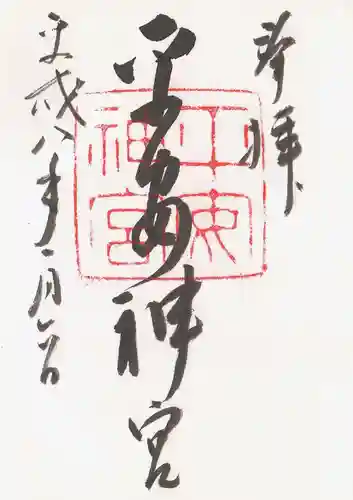 奉拝
平安神宮
平成八年一月六日
平安神宮